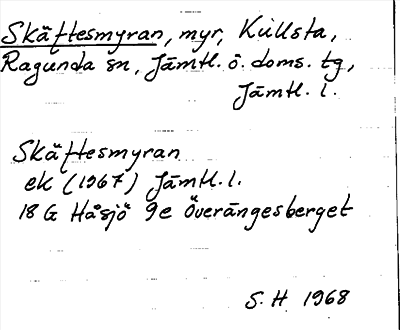 Skäftesmyran, myr, Kullsta,
Ragunda sn, Jämtl. ö. doms. tg,
Jämtl. l.
Skäftesmyran
ek (1967) Jämtl. l.
18 G Håsjö 9e Överängesberget
S. H. 1968